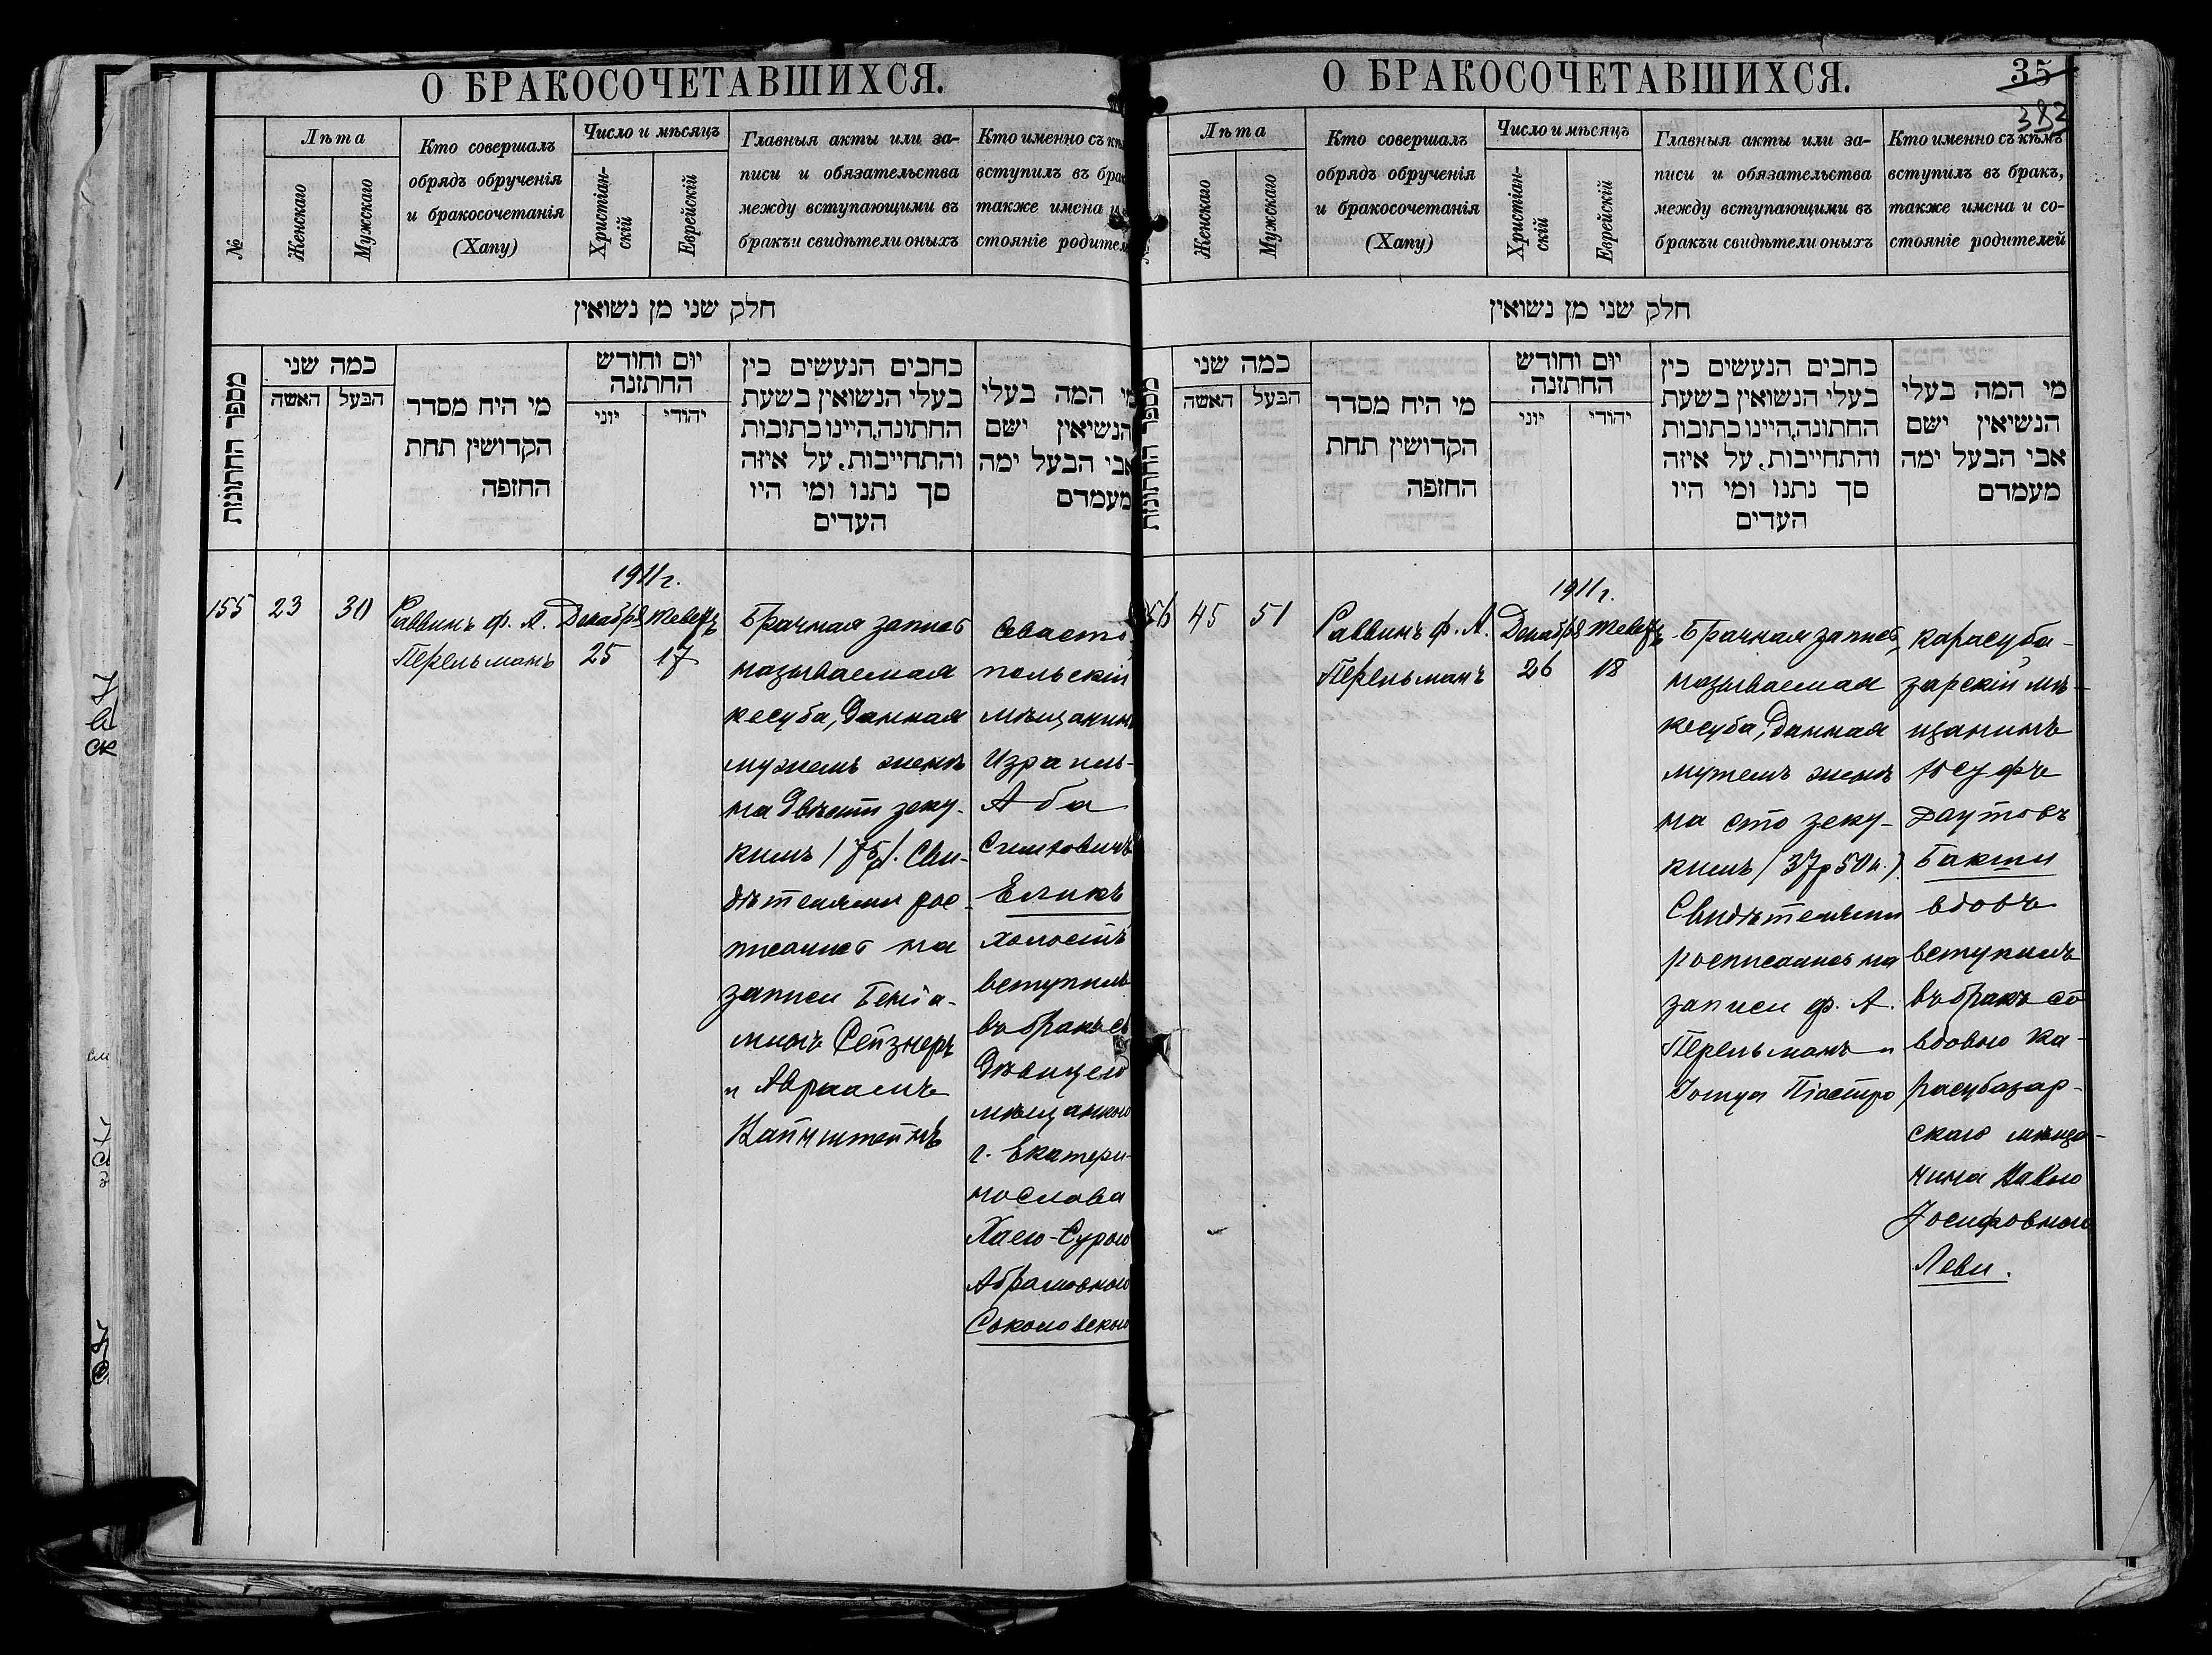 О БРАКОСОЧЕТАВШИХСЯ.
№
Лѣта
Женскаго
Мужскаго
Кто совершалъ
обрядъ обрученія
и бракосочетанія
(Хапу)
Число и мѣсяцъ
Христіан-
скій
Еврейскій
Главныя акты или за-
писи и обязательства
между вступающими въ
бракъи свидѣтели оныхъ
Кто именно съ
вступилъ въ
также имена
стояніе
חלק שני מן נשואין
מספר החתונות
כמה שני
האשה
הבעל
מי היח מסדר
הקדושין תחת
החזפה
יום וחודש
החתזנה
יוני
יהודי
כחבים הנעשים בין
בעלי הנשואין בשעת
החתונה,היינו כתובות
והתחייבות. על איזה
סך נתנו ומי היו
העדים
המה בעלי
הנשיאין ישם
אבי הבעל ימה
מעמדם
1911 г.
155
23
30
Раввинъ Ф. А.
Перельманъ
Декабрь
25
Тевецъ
17
Брачная запись
называемая
кесуба, данная
мужемъ женѣ
на двѣсти зеку-
кимъ (75р). Сви-
дѣтелями рос-
писались на
записи Беніа-
минъ Сейзнеръ
и Авраамъ
Капнштейнъ
Севасто
польскій
мѣщанинъ
Израиль-
Аба
Симховичъ
Еликъ
холостъ
вступилъ
въ бракъ съ
дѣвицею
мѣщанкою
г. Екатери-
нослава
Хаею-Сурою
Абрамовною
Соколовскою
О БРАКОСОЧЕТАВШИХСЯ.
35
383
Лѣта
Женскаго
Мужскаго
Кто совершалъ
обрядъ обрученія
и бракосочетанія
(Хапу)
Число и мѣсяцъ
Христіан-
скій
Еврейскій
Главныя акты или за-
писи и обязательства
между вступающими въ
бракъи свидѣтели оныхъ
Кто именно съ кѣмъ
вступилъ въ бракъ,
также имена и со-
стояніе родителей
חלק שני מן נשואין
מספר החתונות
כמה שני
האשה
הבעל
מי היח מסדר
הקדושין תחת
החזפה
יום וחודש
החתזנה
יוני
יהודי
כחבים הנעשים בין
בעלי הנשואין בשעת
החתונה,היינו כתובות
והתחייבות. על איזה
סך נתנו ומי היו
העדים
מי המה בעלי
הנשיאין ישם
אבי הבעל ימה
מעמדם
1911 г.
156
45
51
Раввинъ Ф. А.
Перельманъ
Декабрь
26
Тевецъ
18
Брачная запись,
называемая
кесуба, данная
мужемъ женѣ
на сто зеку-
кимъ (37р 50к.)
Свидѣтелями
росписались на
записи Ф. А.
Перельманъ и
Іошуа Піастро
Карасуба-
зарскій мѣ-
щанинъ
Юсуфъ
Даутовъ
Бакши
вдовъ
вступилъ
въ бракъ со
вдовою Ка-
расубазар-
скаго мѣща-
нина
Іосифовною
Леви.